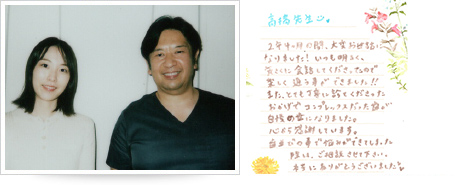 高橋先生へ
2年4ヶ月の間、大変お世話に
なりました！いつも明るく、
楽しく会話してくださったので
楽しく通う事ができました!!
また、とても丁寧に診てくださった
おかげでコンプレックスだった歯が
自慢の歯になりました。
心から感謝しています。
また歯の事で悩みができてしまった
時は、ご相談させて下さい。
本当にありがとうございました